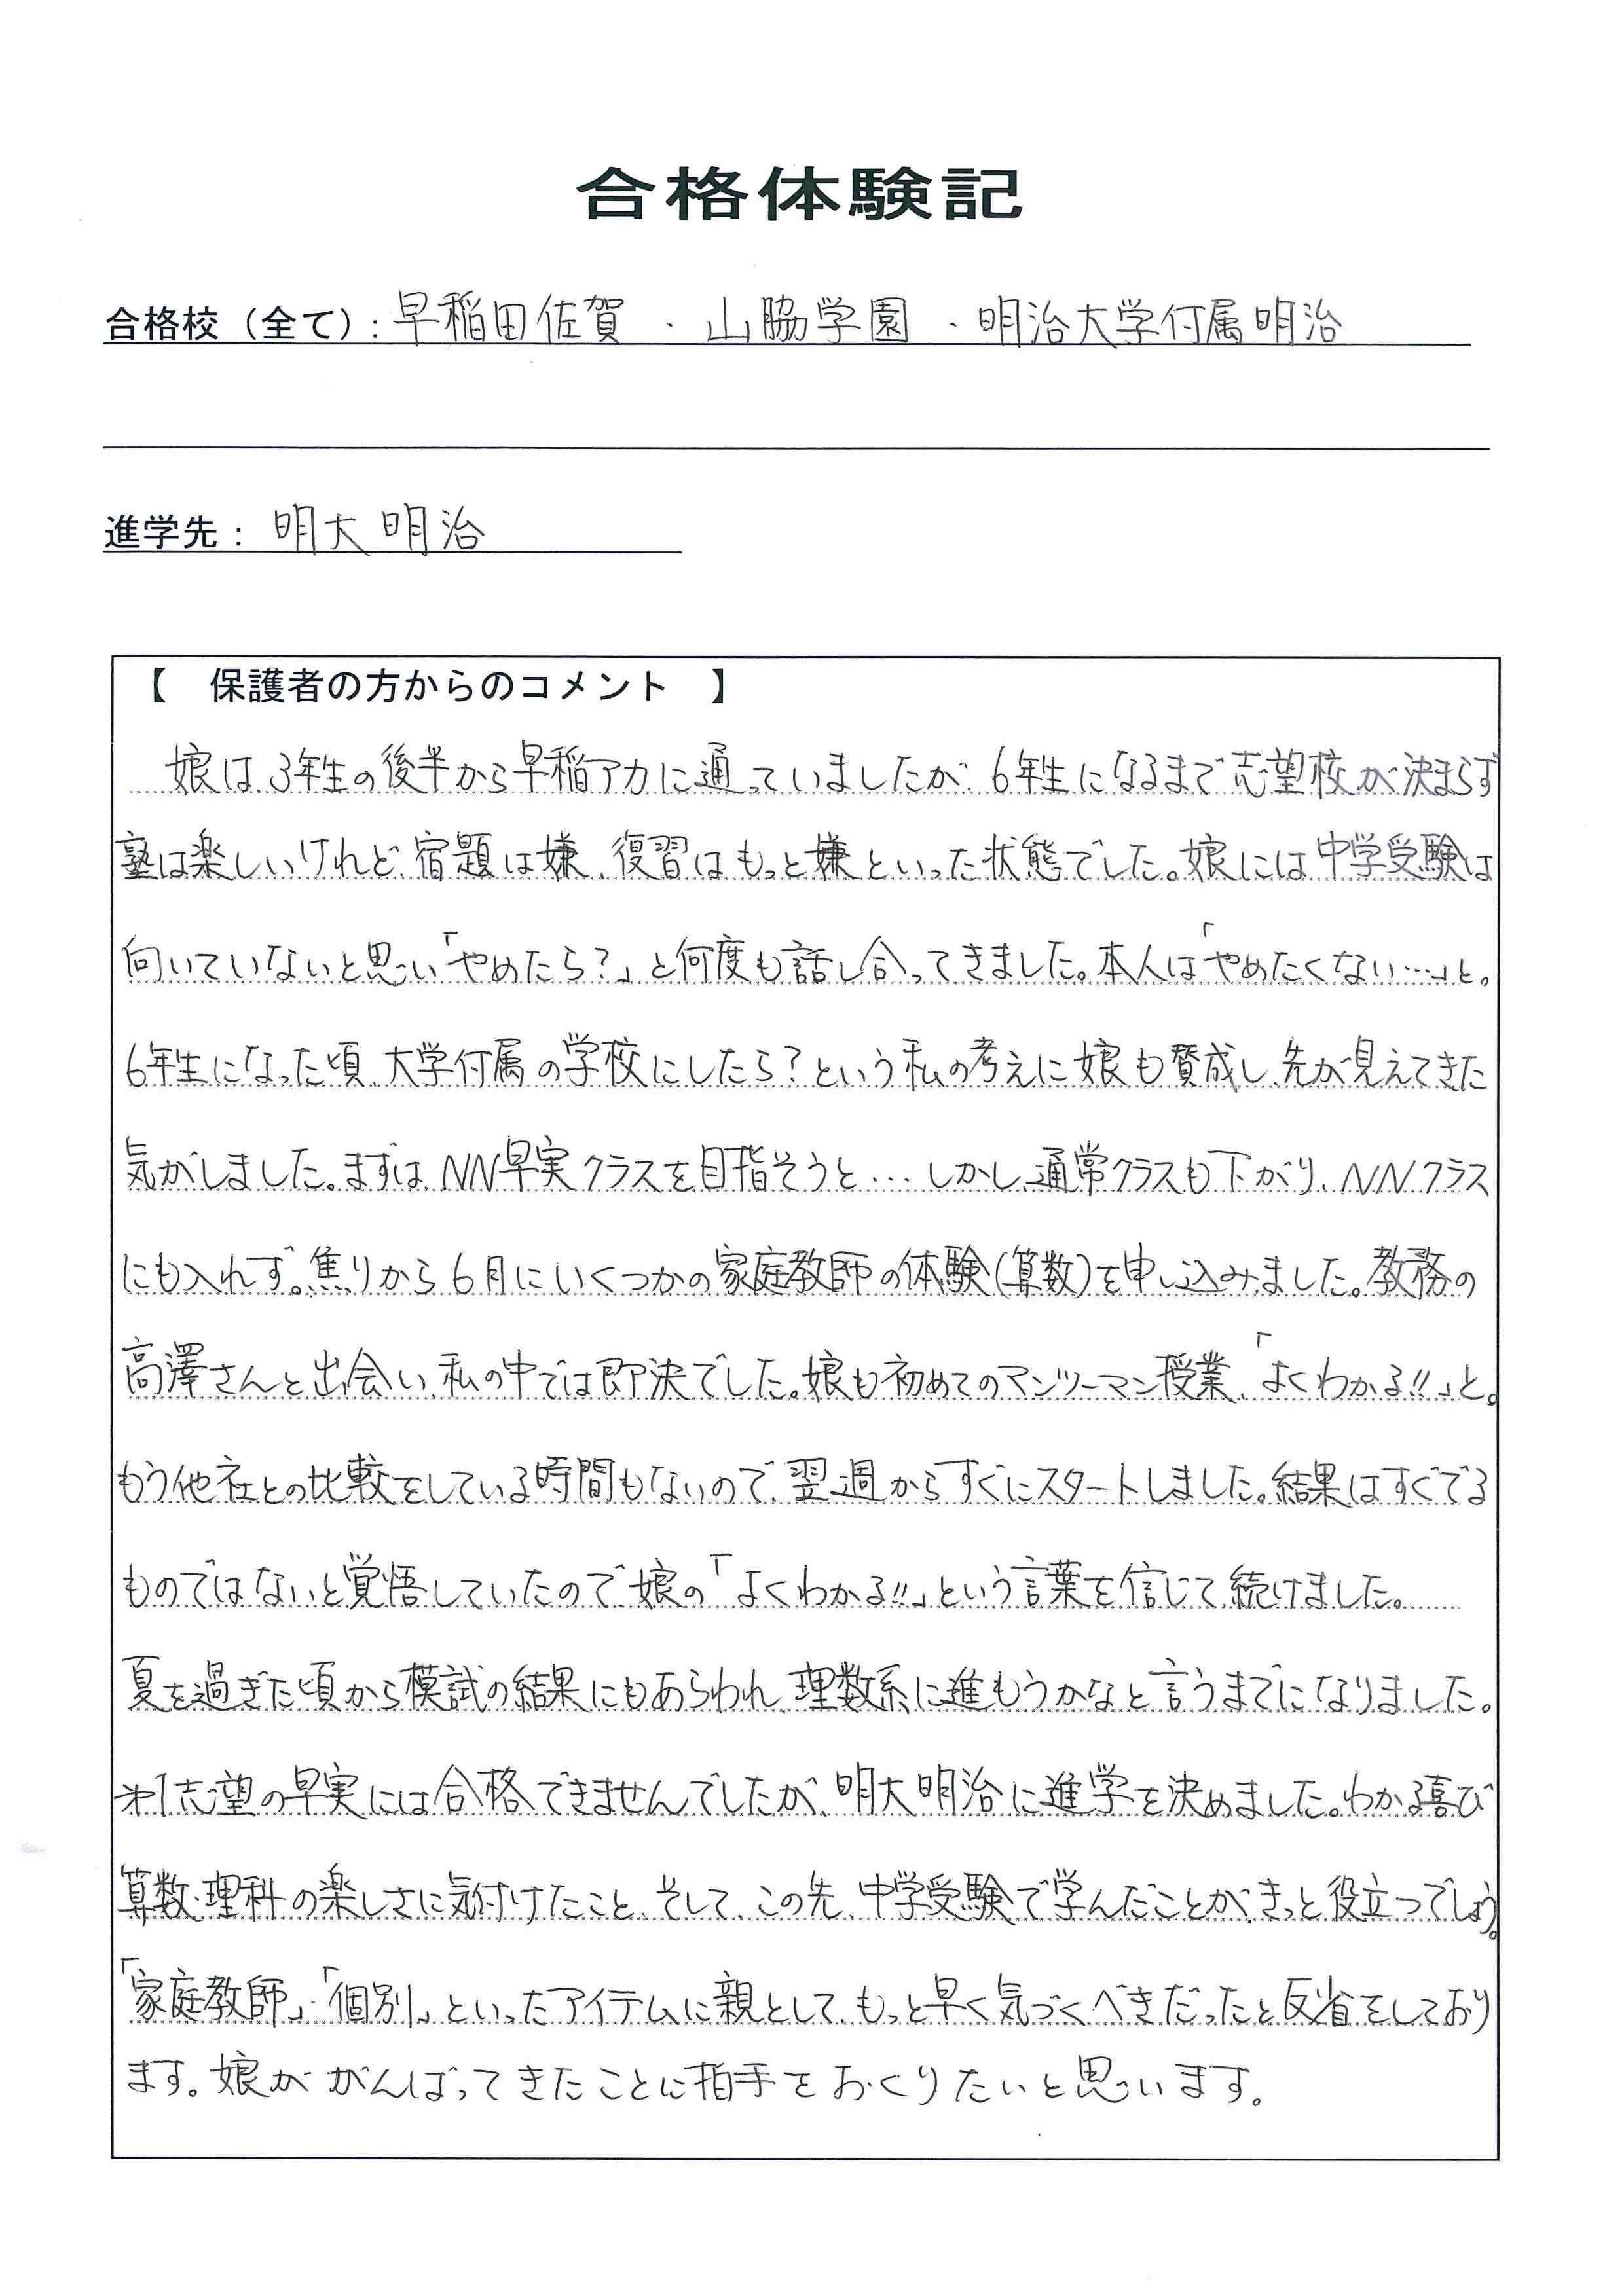 合格体験記
合格校（全て）：早稲田佐賀 ・ 山脇学園 ・ 明治大学付属明治
進学先： 明大明治
【 保護者の方からのコメント 】
娘は、3年生の後半から早稲アカに通っていましたが、6年生になるまで志望校が決まらず
塾は楽しいけれど、宿題は嫌、復習はもっと嫌といった状態でした。娘には中学受験は
向いていないと思い「やめたら？」と何度も話し合ってきました。本人は「やめたくない…」と。
6年生になった頃、大学付属の学校にしたら？という私の考えに娘も賛成し、先が見えてきた
気がしました。まずは、NN早実クラスを目指そうと… しかし、通常クラスも下がり、NNクラス
にも入れず。焦りから6月にいくつかの家庭教師の体験（算数）を申し込みました。教務の
高澤さんと出会い、私の中では即決でした。娘も初めてのマンツーマン授業、「よくわかる!!」と。
もう他社との比較をしている時間もないので、翌週からすぐにスタートしました。結果はすぐでる
ものではないと覚悟していたので、娘の「よくわかる!!」という言葉を信じて続けました。
夏を過ぎた頃から模試の結果にもあらわれ、理数系に進もうかなと言うまでになりました。
第1志望の早実には合格できませんでしたが、明大明治に進学を決めました。わかる喜び
算数・理科の楽しさに気付けたこと、そして、この先、中学受験で学んだことが、きっと役立つでしょう。
「家庭教師」・「個別」といったアイテムに親として、もっと早く気づくべきだったと反省をしており
ます。娘ががんばってきたことに拍手をおくりたいと思います。